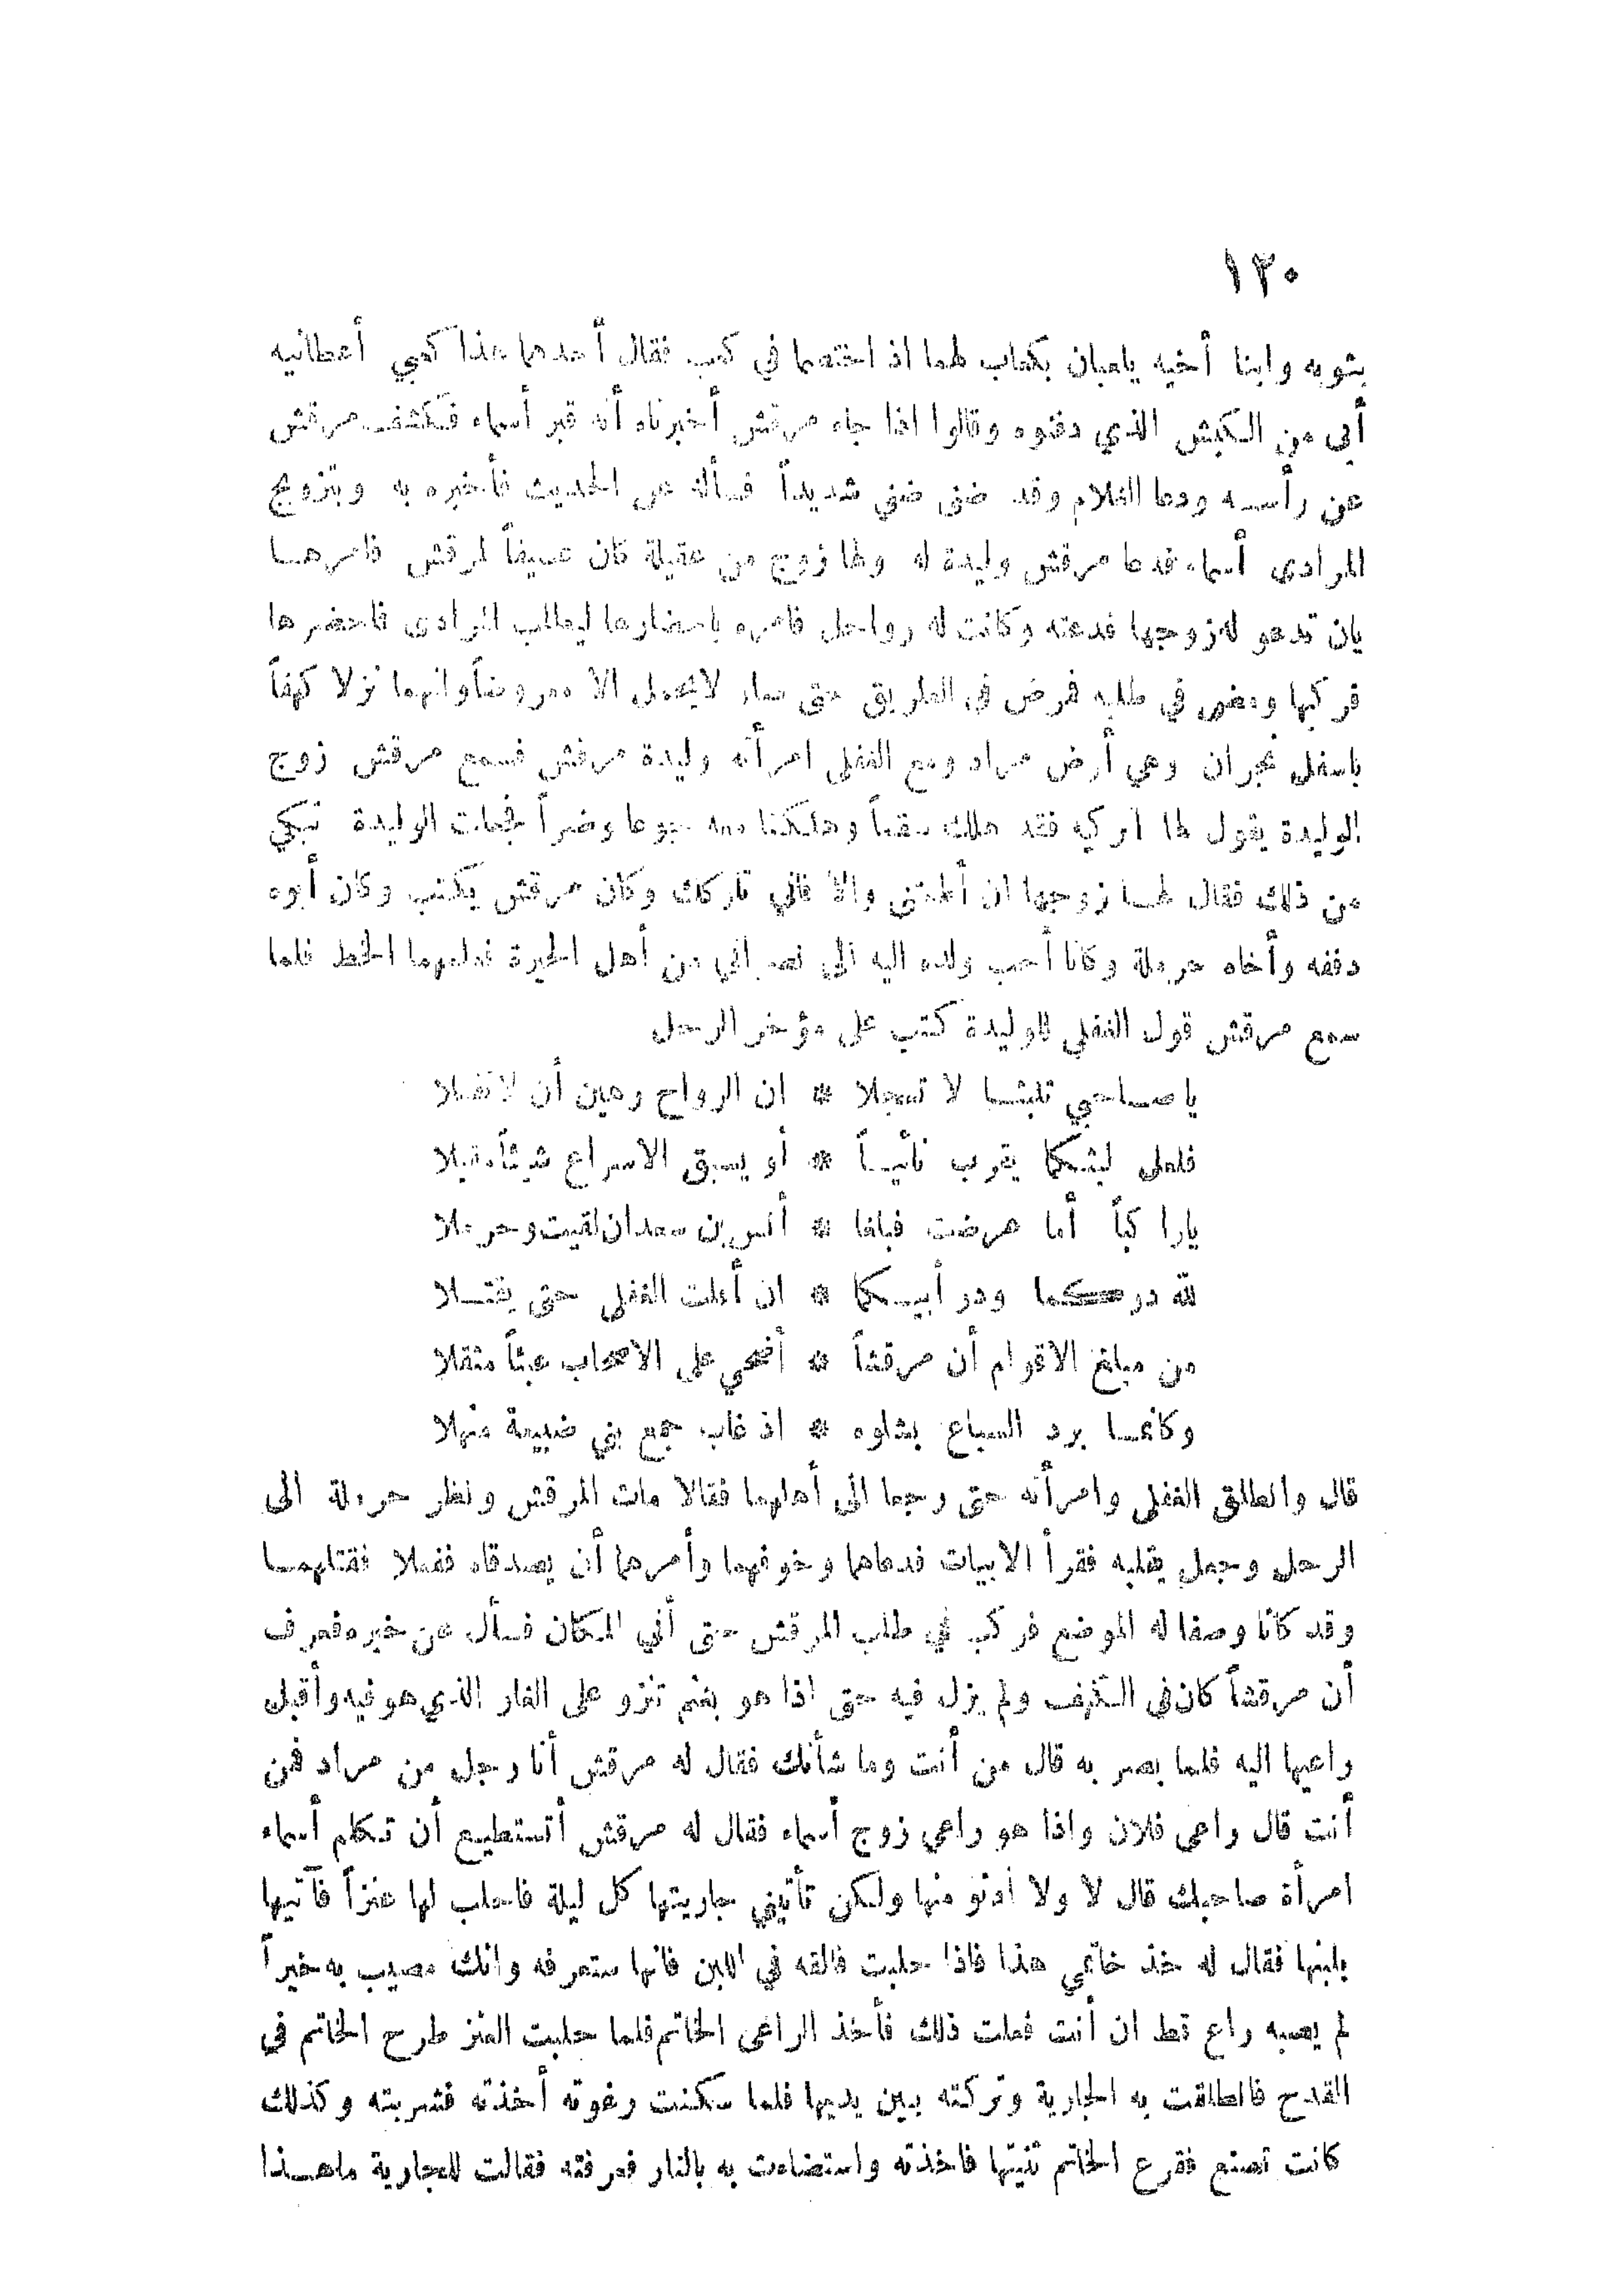 ١٣٠
بثوبه وابنا أخيه يلعبان بكعاب لهما اذ اختصما في كعب فقال أحدهما هذا كعبي أعطانيه
أبى من الكبش الذي دفنوه وقالوا اذا جاء مرقش أخبرناه أنه قبر أسماء فكشف مرقش
عن رأسه ودعا الغلام وقد ضنى ضنى شديداً فسأله عن الحديث فأخبره به وبتزويج
المرادى أسماء فدعا مرقش وليدة له ولها زوج من عقيلة كان عسيفاً لمرقش فامرها
بان تدعو له زوجها فدعته وكانت له رواحل فامره باحضارها ليطلب المرادى فاحضرها
فركبها ومضى في طلبه فمرض في الطريق حتى صار لا يحمل الا معروضاً وانهما نزلا كهفاً
باسفل نجران وهي أرض مراد ومع الغفلى امرأته وليدة مرقش فسمع مرقش زوج
الوليدة يقول لها اتركيه فقد هلك سقماً وهلكنا معه جوعا وضراً فجعلت الوليدة تبكي
من ذلك فقال لها زوجها ان أطعتنى والا فاني تاركك وكان مرقش يكتب وكان أبوه
دفعه وأخاه حرملة وكانا أحب ولده اليه الى نصراني من أهل الحيرة فعلمهما الخط فلما
سمع مرقش قول الغفلى للوليدة كتب على مؤخر الرحل
يا صاحبي تلبثا لا تعجلا * ان الرواح رهين أن لا تفعلا
فلعل لبثكما يقرب نائياً * أو يسبق الاسراع شيئاً مقبلا
يا راكباً أما عرضت فبلغا * أنس بن سعد ان لقيت وحرملا
لله دركما ودر أبيكما * ان أفلت الغفلى حتى يقتلا
من مبلغ الاقوام أن مرقشاً * أضحى على الاصحاب عبئاً مثقلا
وكانما برد السباع بشلوه * اذ غاب جمع بني ضبيعة منهلا
قال وانطلق الغفلى وامرأته حتى رجعا الى أهلهما فقالا مات المرقش ونظر حرملة الى
الرحل وجعل يقلبه فقرأ الابيات فدعاهما وخوفهما وأمرهما أن يصدقاه ففعلا فقتلهما
وقد كانا وصفا له الموضع فركب في طلب المرقش حتى أتي المكان فسأل عن خبره فعرف
أن مرقشاً كان في الكهف ولم يزل فيه حتى اذا هو بغنم تنزو على الغار الذي هو فيه وأقبل
راعيها اليه فلما بصر به قال من أنت وما شأنك فقال له مرقش أنا رجل من مراد فمن
أنت قال راعى فلان واذا هو راعي زوج أسماء فقال له مرقش أتستطيع أن تكلم أسماء
امرأة صاحبك قال لا ولا أدنو منها ولكن تأتيني جاريتها كل ليلة فاحلب لها عنزاً فتأتيها
بلبنها فقال له خذ خاتمي هذا فاذا حلبت فالقه في اللبن فانها ستعرفه وانك مصيب به خيراً
لم يصبه راع قط ان أنت فعلت ذلك فأخذ الراعى الخاتم فلما حلبت العنز طرح الخاتم في
القدح فانطلقت به الجارية وتركته بين يديها فلما سكنت رغوته أخذته فشربته وكذلك
كانت تصنع فقرع الخاتم ثنيتها فاخذته واستضاءت به بالنار فعرفته فقالت للجارية ما هذا